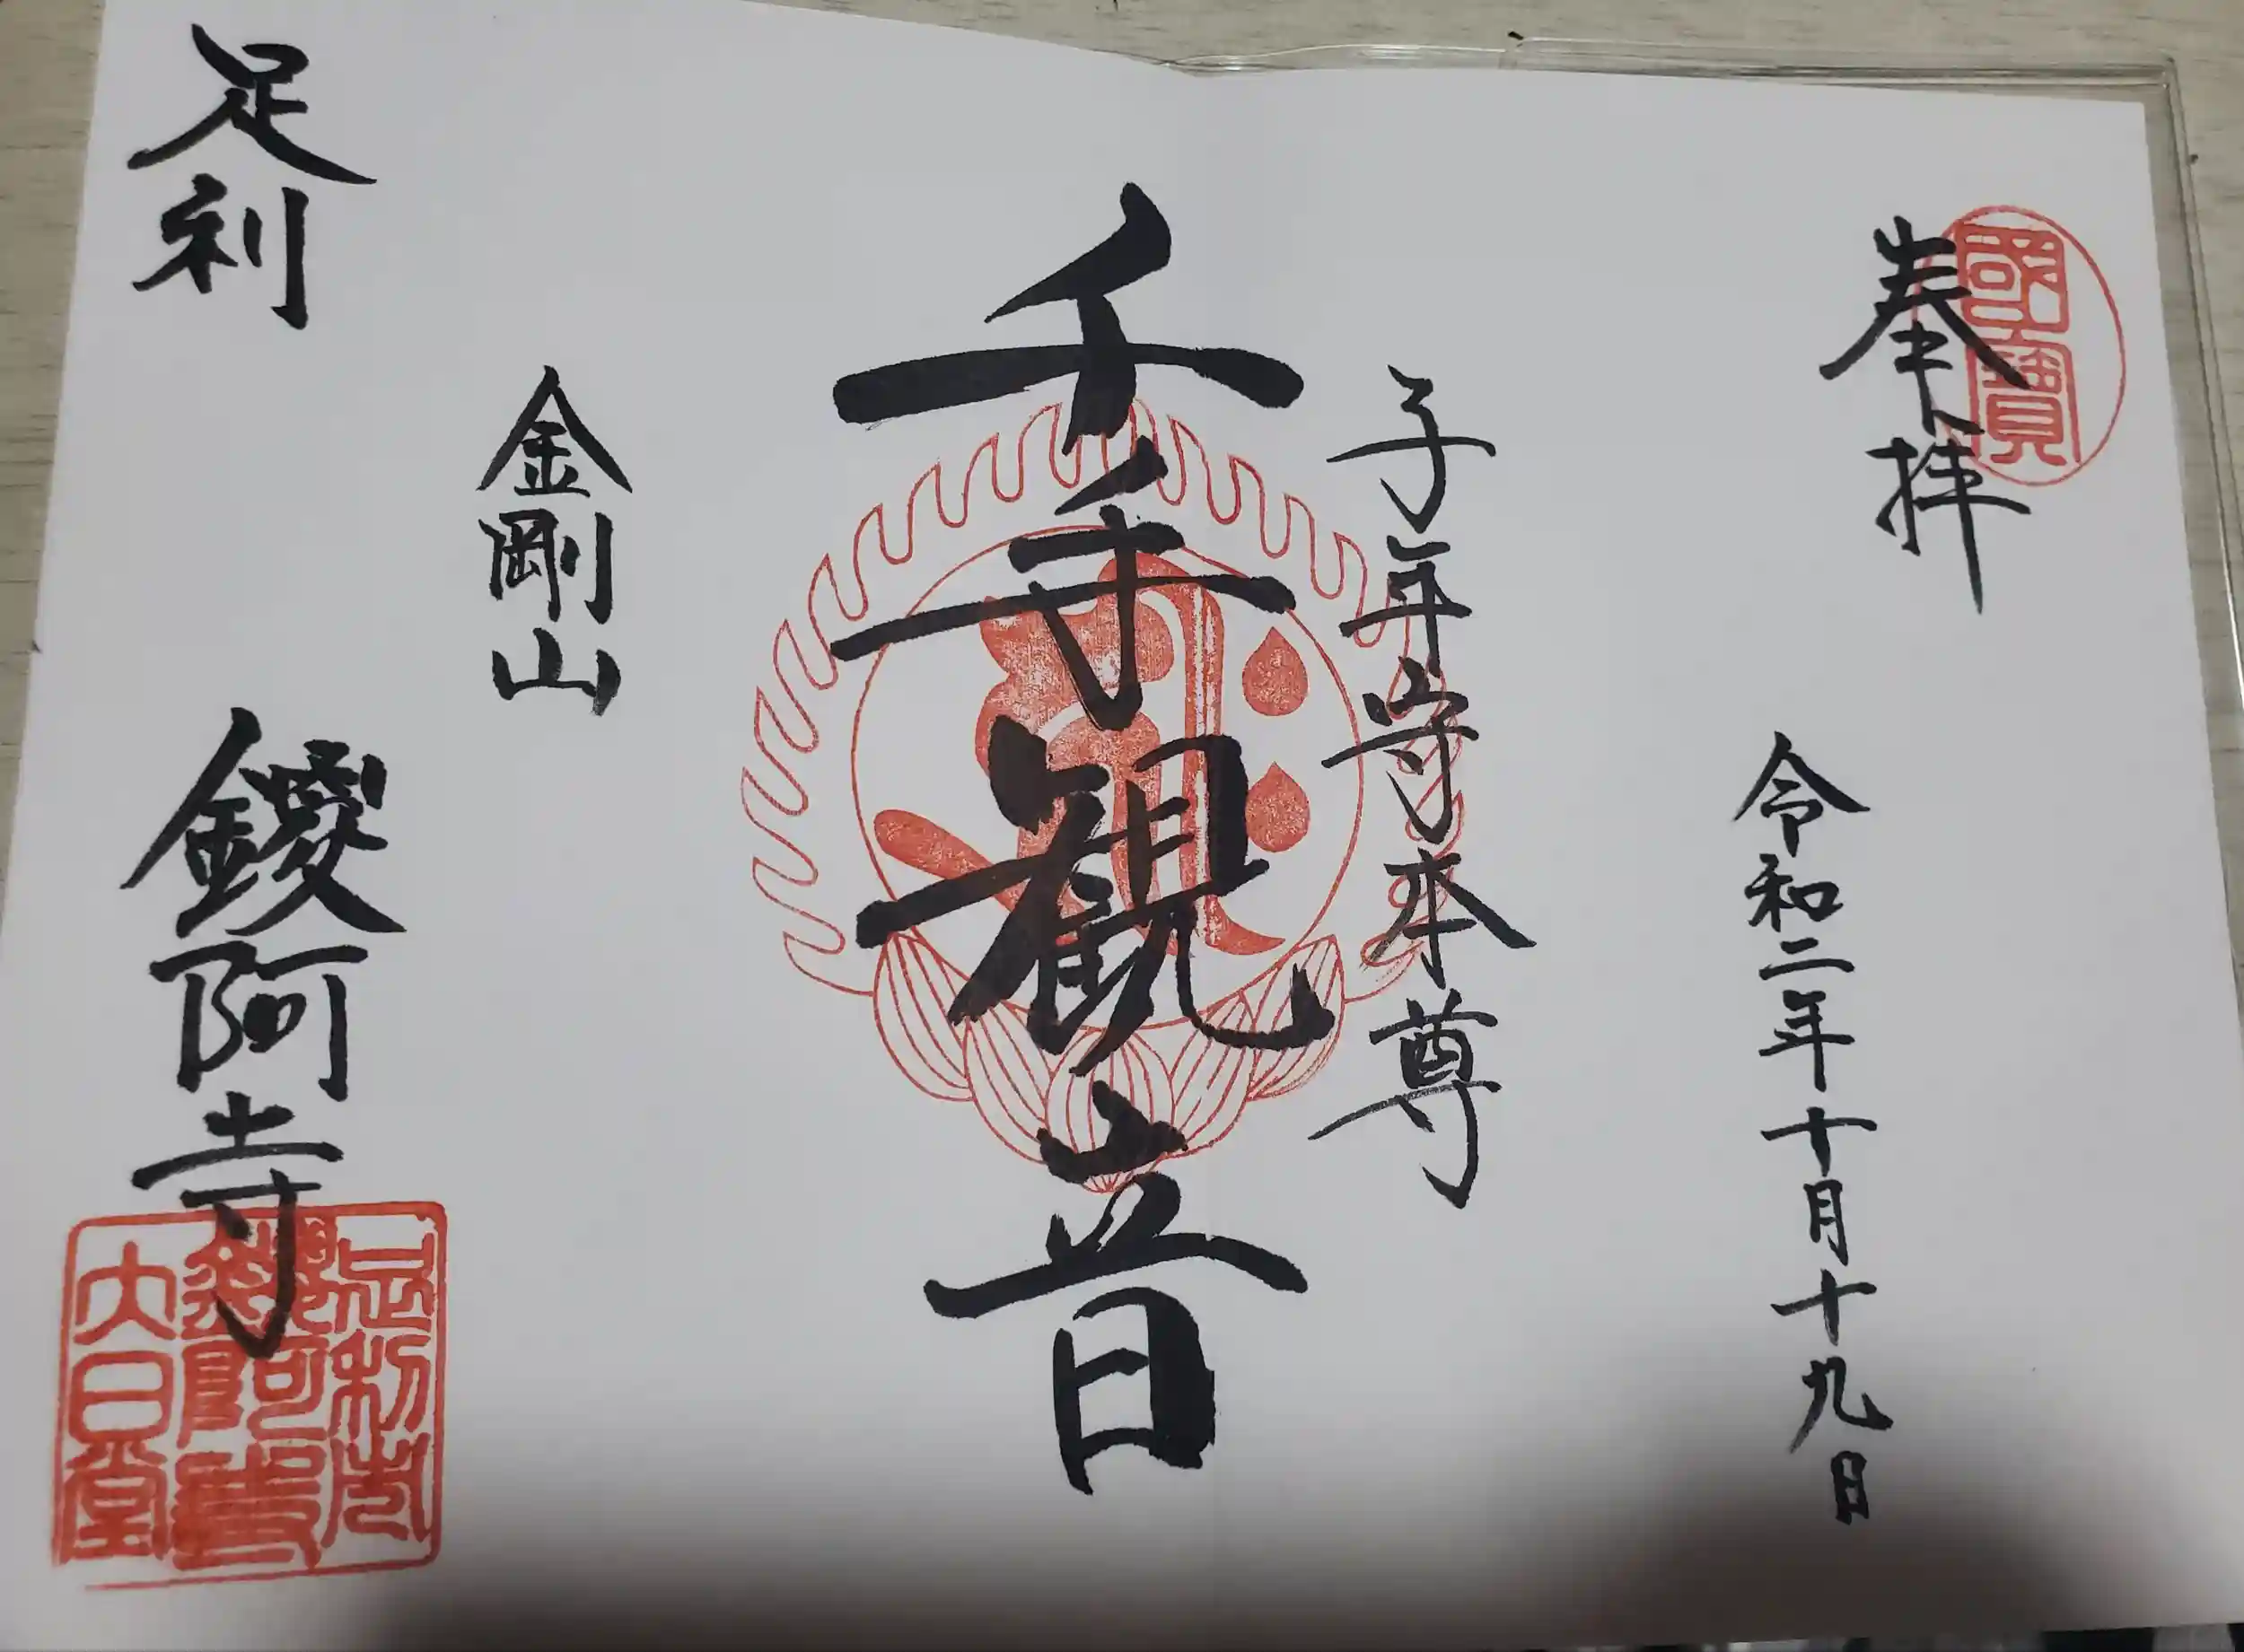 國寶
奉拝
令和二年十月十九日
子年守本尊
千手観音
金剛山
足利 鑁阿寺
足利市
鑁阿寺
大日堂